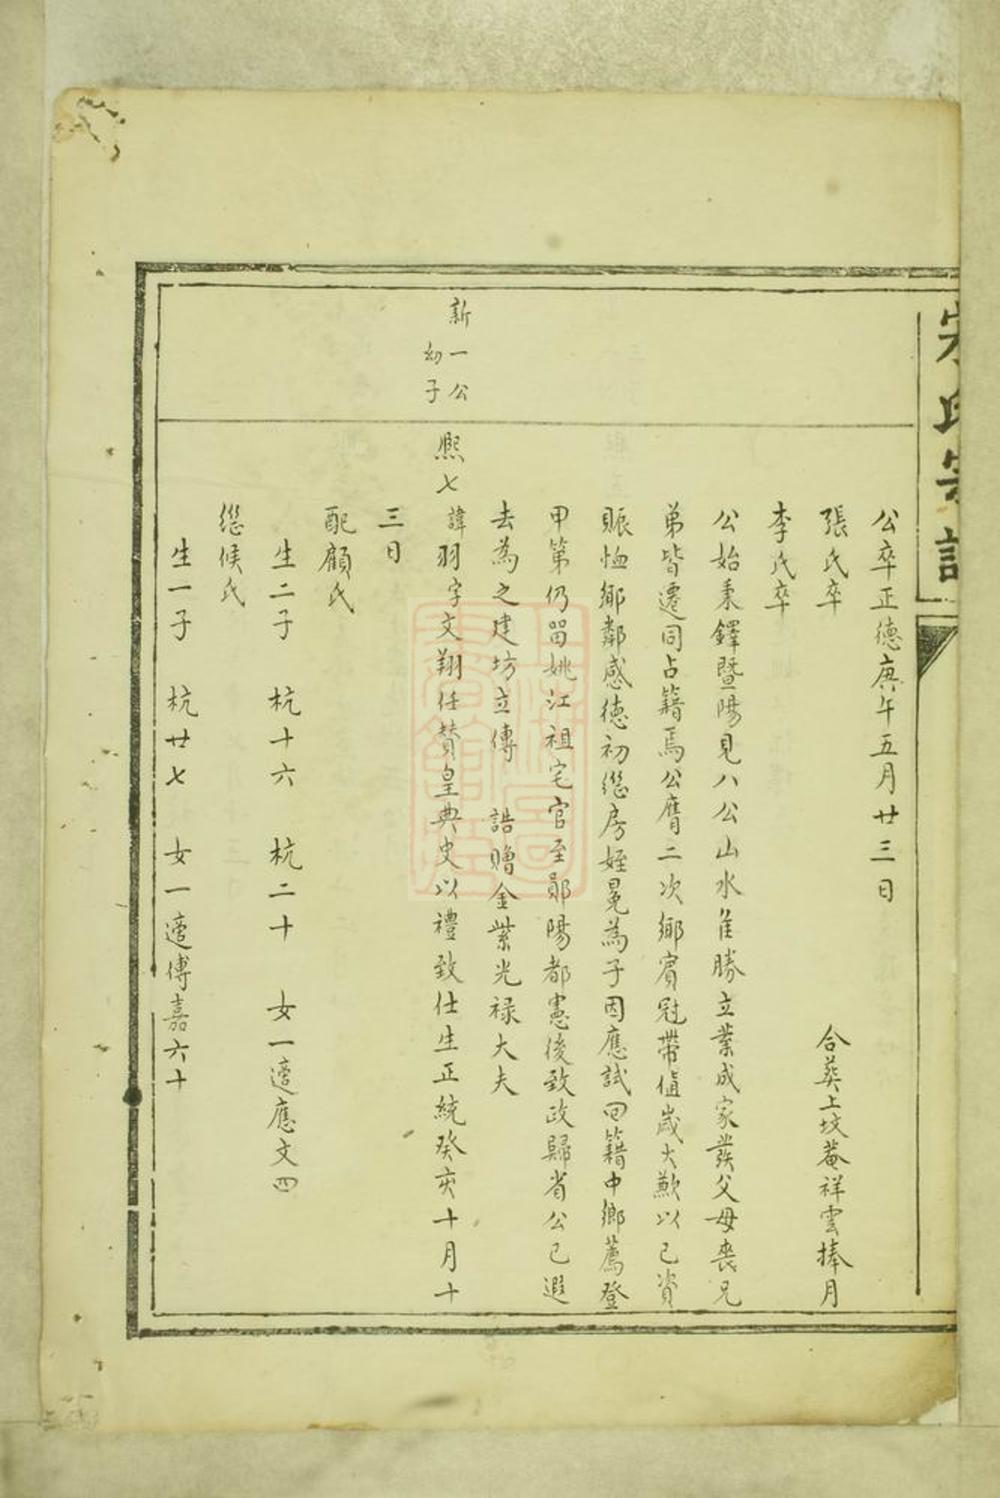 宋氏宗譜
公卒正德庚午五月廿三日
張氏卒 合葬上坟菴祥雲捧月
李氏卒
公始秉鐸暨陽見八公山水隹勝立業成家喪父母喪兄
弟皆遷同占籍焉公膺二次鄉賓冠帶值歲大歉以己資
賑恤鄉鄰感德初繼房姪冕為子因應試回籍中鄉薦登
甲第仍畱姚江祖宅官至鄖陽都憲後致政歸省公已遐
去為之建坊立傳 誥贈金紫光祿大夫
新一公
幼子
熙七 諱羽字文翔任贊皇典史以禮致仕生正統癸亥十月十
三日
配顧氏
生二子 杭十六 杭二十 女一適應文四
繼候氏
生一子 杭廿七 女一適傅嘉六十